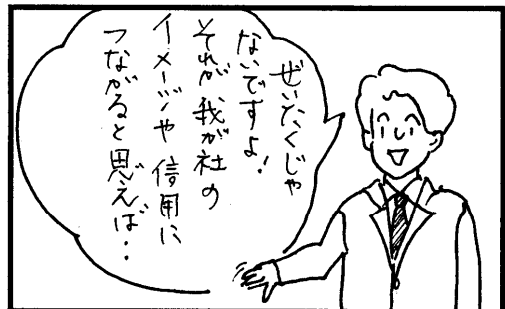 ぜいたくじゃ
ないですよ！
それが、我が社の
イメージや信用に
つながると思えば‥